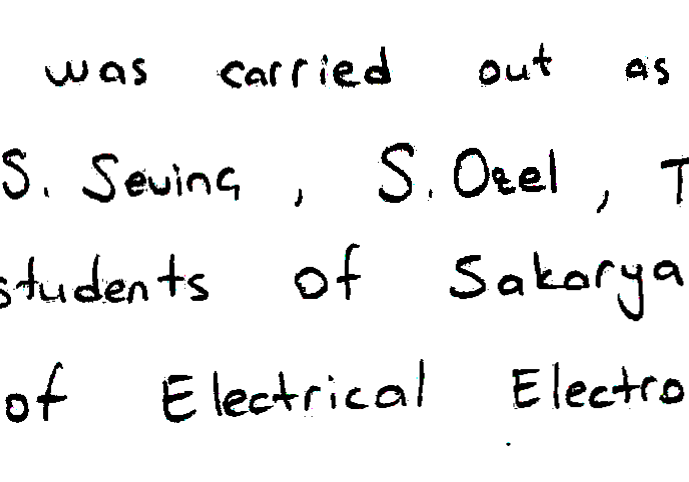 was carried out as
S. Sevinç, S. Ozel, T
students of Sakarya
of Electrical Electro